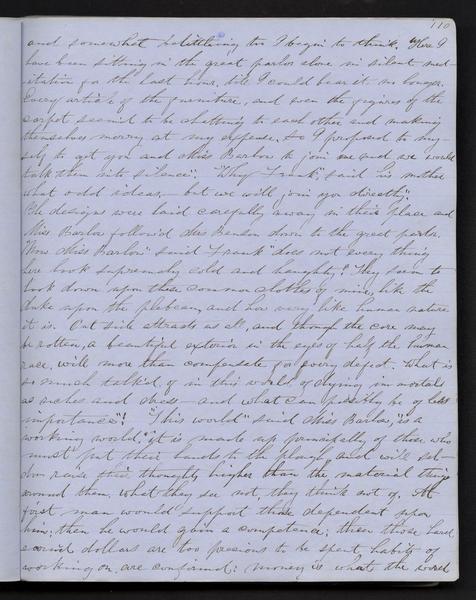 110
and somewhat belittleing too I begin to think. Here I
have been sitting in the great parlor alone in silent med-
itation for the last hour, till I could bear it no longer.
Every article of the furniture, and even the figures of the
carpet seemed to be chatting to each other and making
themselves merry at my expense. So I proposed to my-
self to get you and Miss Barlow to join me and we would
talk them into silence". "Why Frank" said his mother
what odd ideas, but we will join you directly".
The designs were laid carefully away in their place and
Miss Barlow follow'd Mrs Benson down to the great parlor.
"Now Miss Barlow" said Frank "does not every thing
here look supremely cold and haughty? They seem to
look down upon these common clothes of mine, like the
duke upon the plebean, and how very like human nature
it is. Out side attracts us all, and though the core may
be rotten, a beautiful exterior in the eyes of half the human
race, will more than compensate for every defect. What is
so much talk'd of in this world of dying in mortals
as riches and dress and what can possibly be of less
importance"! "This world" said Miss Barlow, "is a
working world; it is made up principally of those who
must put their hands to the plough and will sel-
dom raise their thoughts higher than the material things
around them. What they see not, they think not of. At
first man would support those dependent upon
him; then he would gain a competence; then those hard
earned dollars are too precious to be spent, habits of
working on, are confirmed; money is what the world